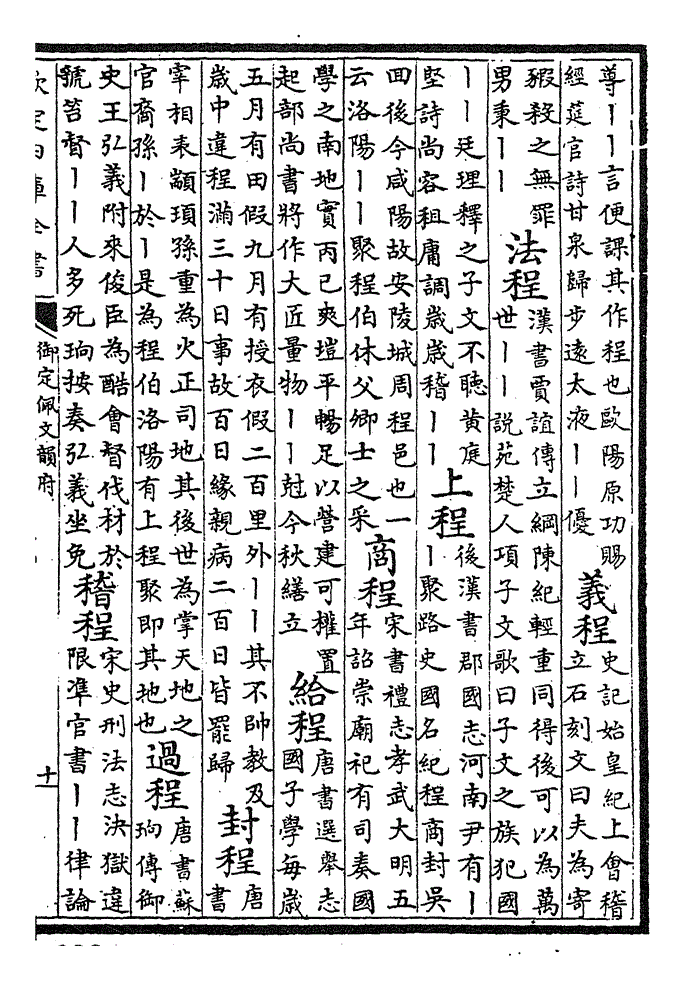 尊丨丨言便課其作程也歐陽原功賜
經筵官詩甘泉歸步遠太液丨丨優
義程
史記始皇紀上會稽
立石刻文曰夫為寄
豭殺之無罪
男秉丨丨
法程
漢書賈誼傳立綱陳紀輕重同得後可以為萬
世丨丨說苑楚人項子文歌曰子文之族犯國
丨丨廷理釋之子文不聽黄庭
堅詩尚容租庸調歲歲稽丨丨
上程
後漢書郡國志河南尹有丨
丨聚路史國名紀程商封吳
回後今咸陽故安陵城周程邑也一
云洛陽丨丨聚程伯休父卿士之采
商程
宋書禮志孝武大明五
年詔崇廟祀有司奏國
學之南地實丙巳爽塏平暢足以營建可權置
起部尚書將作大匠量物丨丨尅今秋繕立
給程
唐書選舉志
國子學每歲
五月有田假九月有授衣假二百里外丨丨其不帥教及
歲中違程滿三十日事故百日緣親病二百日皆罷歸
封程
唐
書
宰相表顓頊孫重為火正司地其後世為掌天地之
官裔孫丨於丨是為程伯洛陽有上程聚即其地也
過程
唐書蘇
珦傳御
史王弘義附來俊臣為酷會督伐材於
號笞督丨丨人多死珦按奏弘義坐免
稽程
宋史刑法志決獄違
限準官書丨丨律論
欽定四庫全書
御定佩文韻府
十